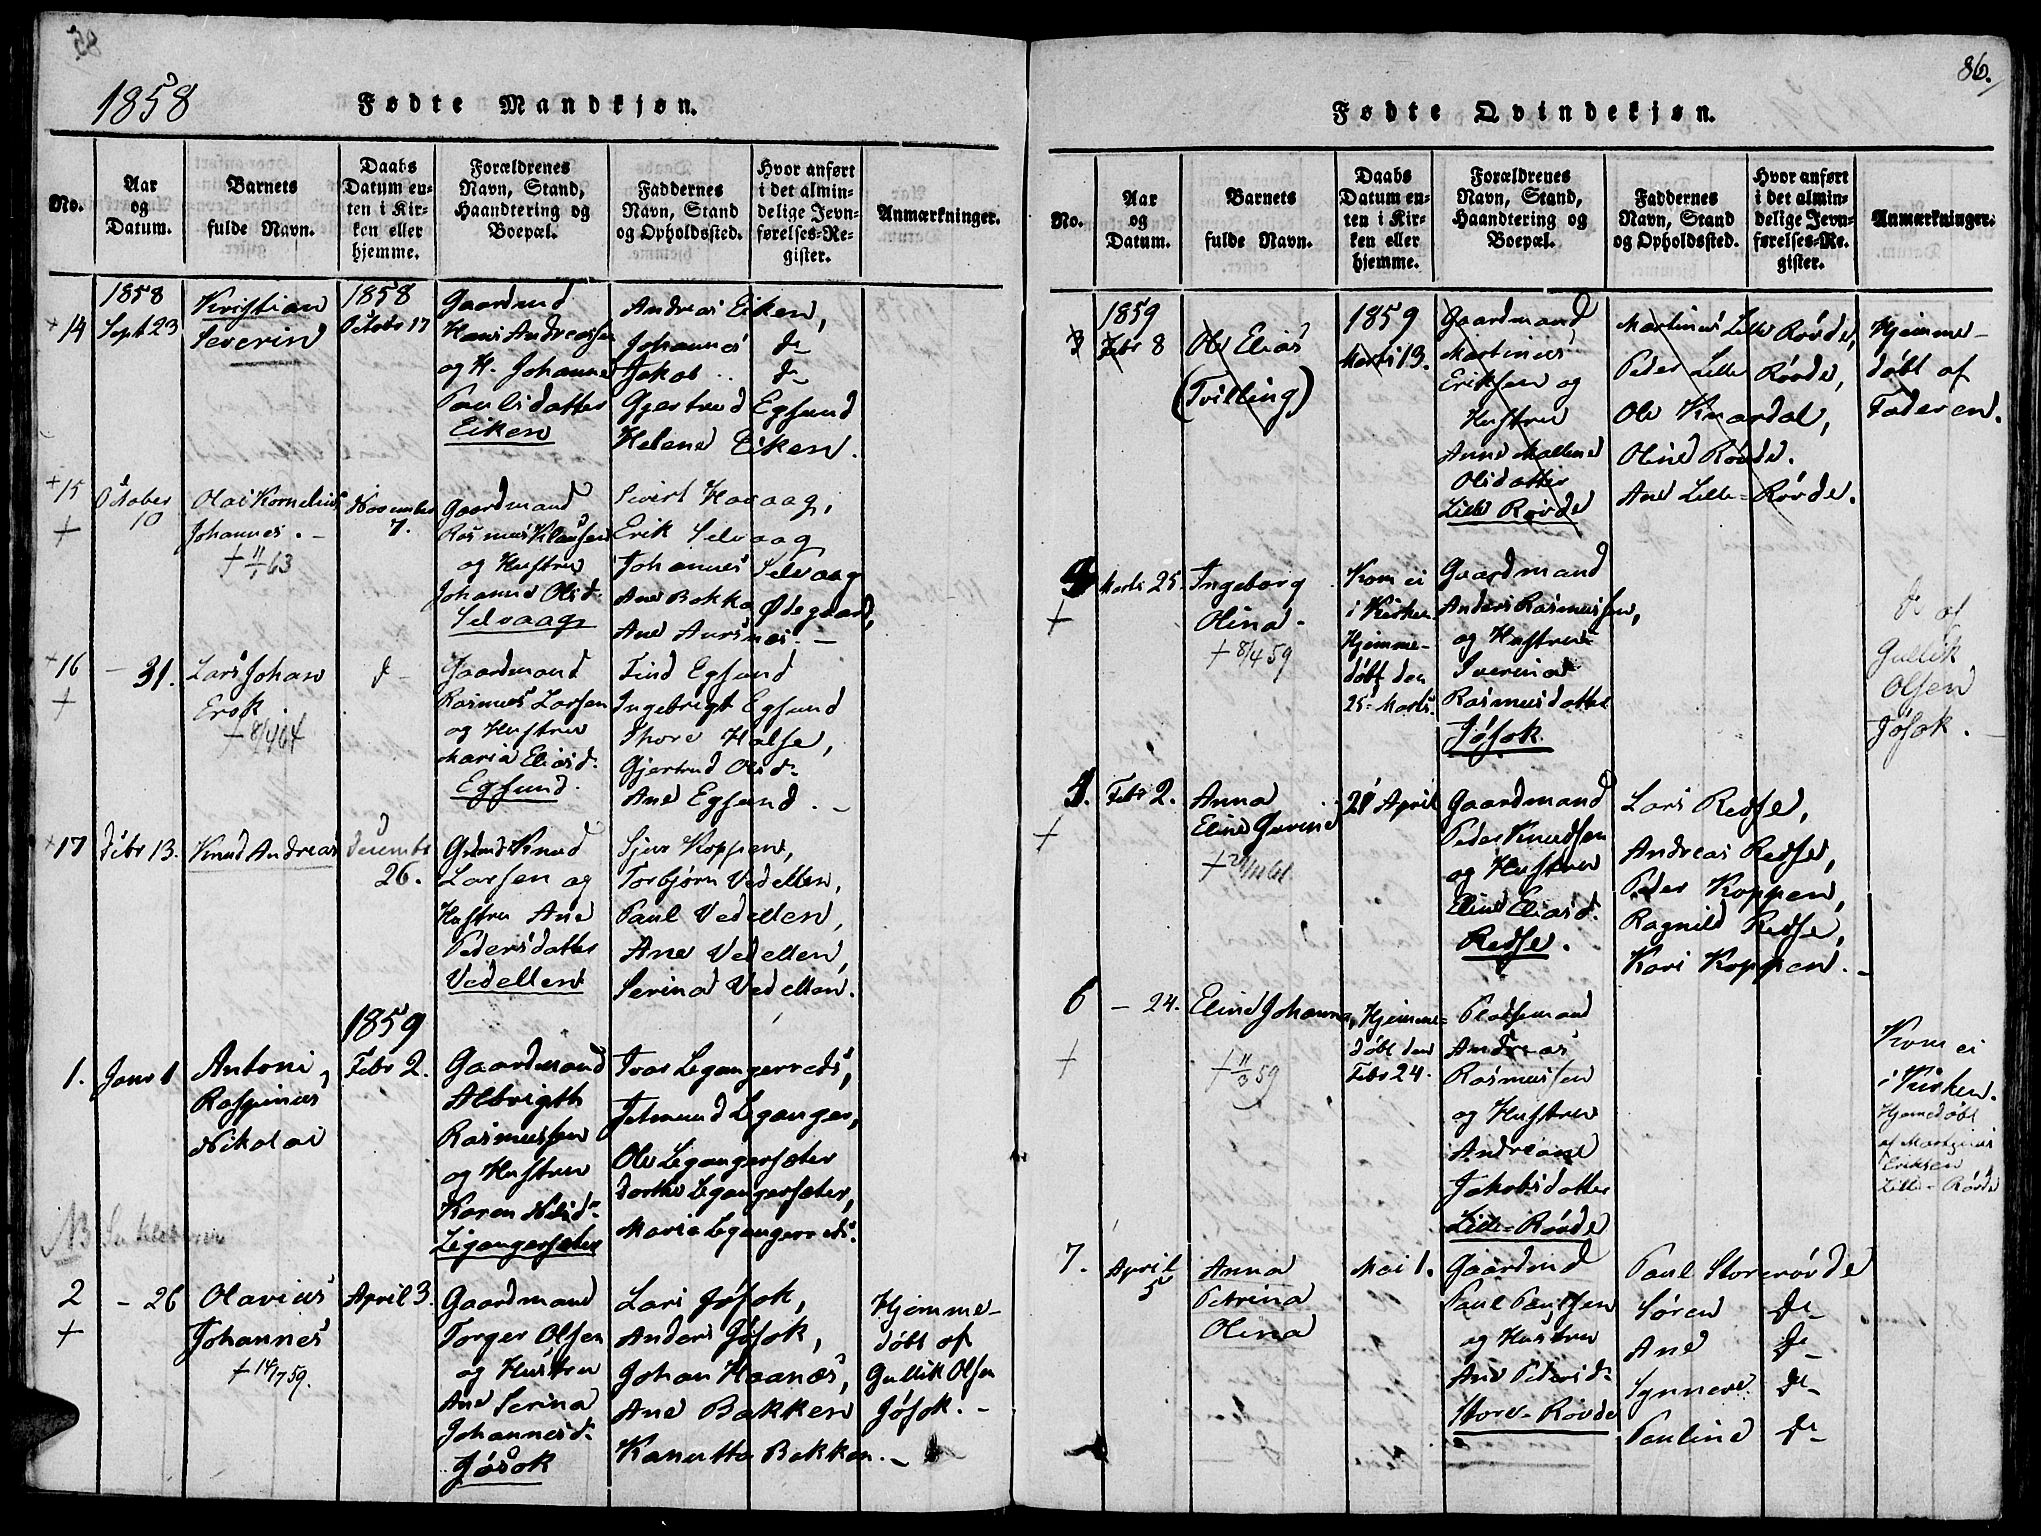 85
1858
Fødte Mandkjøn.
No.
Aar
og
Datum.
Barnets
fulde Navn.
Daabs
Datum en-
ten i Kir-
ken eller
hjemme.
Forældrenes
Navn, Stand,
Haandtering og
Boepæl.
Faddernes
Navn, Stand
og Opholdssted.
Hvor anført
i det almin-
delige Jevn-
førelses-Re-
gister.
Anmærkninger.
+14
1858
Sept 23
Kristian
Severin
1858
Octobr 17
Gaardmd
Hans Andreassen
og H. Johanne
Paulsdatter
Eiken
Andreas Eiken,
Johannes d-
Jakob .. d-
Gjertrud Egsund
Helene Eiken.
+15
+
October
10
Olai Kornelius
Johannes. -
+ 11/1 63
November
7.
Gaardmand
Rasmus Klausen
og Hustru
Johanne Olsd.
Selvaag
Sivert Havaag,
Erik Selvaag
Johannes Selvaag
Ane Bakke Ødegaard,
Ane Aursnes. -
+16
+
- 31.
Lars Johan
Erok
+ 8/4 64
d-
Gaardmand
Rasmus Larsen
og Hustru
Maria Eliasd.
Egsund.
Find Egsund
Ingebrigt Egsund
Thore Halse,
Gjertrud Olsd-
Ane Egsund. -
+17
Dcbr 13.
Knud Andreas
Decembr
26.
Gdmd Knud
Larsen og
Hustru Ane
Pedersdatter
Vedelden
Sjur Koppen,
Torbjørn Vedelden,
Paul Vedelden,
Ane Vedelden,
Serina Vedelden.
1.
Janr 1
Antoni,
Raspinus
Nikolai
1859
Febr 2.
Gaardmand
Albrigth
Rasmussen
og Hustru
Karen Nilsd-
Legangersæter
Ivar Legangerreds,
Jetmund Leganger,
Ole Legangersæter
Dorthe Legangersæter,
Maria Legangerreds.
NB
2
+
- 26
Olavius
Johannes
+ 14/7 59.
April 3.
Gaardmand
Torger Olsen
og Hustru
Ane Serina
Johannesd-
Jøsok
Lars Jøsok,
Anders Jøsok,
Johan Haanæs,
Ane Bakken
Kanutte Bakken.
Hjemme-
døbt af
Gullik Olsen
Jøsok. -
86.
Fødte Qvindekjøn.
No.
Aar
og
Datum.
Barnets
fulde Navn.
Daabs
Datum en-
ten i Kir-
ken eller
hjemme.
Forældrenes
Navn, Stand,
Haandtering og
Boepæl.
Faddernes
Navn, Stand
og Opholdssted.
Hvor anført
i det almin-
delige Jevn-
førelses-Re-
gister.
Anmærkninger.
3
1859
Febr 8
Ole Elias
(Tvilling)
1859
Marts 13.
Gaardmand
Martinus
Eriksen og
Hustru
Anne Malline
Olsdatter
Lille Røvde
Martinus Lille Røvde,
Peder Lille Røvde,
Ole Knardal,
Oline Røvde.
Ane Lille-Røvde.
Hjemme-
døbt af
Faderen.
4
+
Marts 25.
Ingeborg
Olina -
+ 8/4 59
Kom ei
i Kirken.
Hjemme-
døbt den
25- Marts.
Gaardmand
Anders Rasmussen,
og Hustru
Severina
Rasmusdatter
Jøsok.
d- af
Gullik
Olsen
Jøsok. -
5.
+
Febr 2.
Anna
Eline Gurine
21 April
Gaardmand
Peder Knudsen
og Hustru
Eline Eliasd.
Redse.
Lars Redse,
Andreas Redse,
Peder Koppen,
Ragnild Redse,
Kari Koppen. -
6
+
- 24.
Eline Johanna,
+ 11/3 59
Hjemme-
døbt den
Febr 24.
Pladsemand
Andreas
Rasmussen
og Hustru
Andreane
Jakobsdatter
Lille-Røvde
Kom ei
i Kirken.
Hjemedøbt
af Martinus
Eriksen
Lille-Røvde
7.
April
5
Anna
Petrina
Olina
Mai 1.
Gaardmd
Paul Paulsen
og Hustru
Ane Pedersd-
Store-Røvde
Paul Storerøvde
Søren d-
Ane d-
Synneve d-
Pauline d-